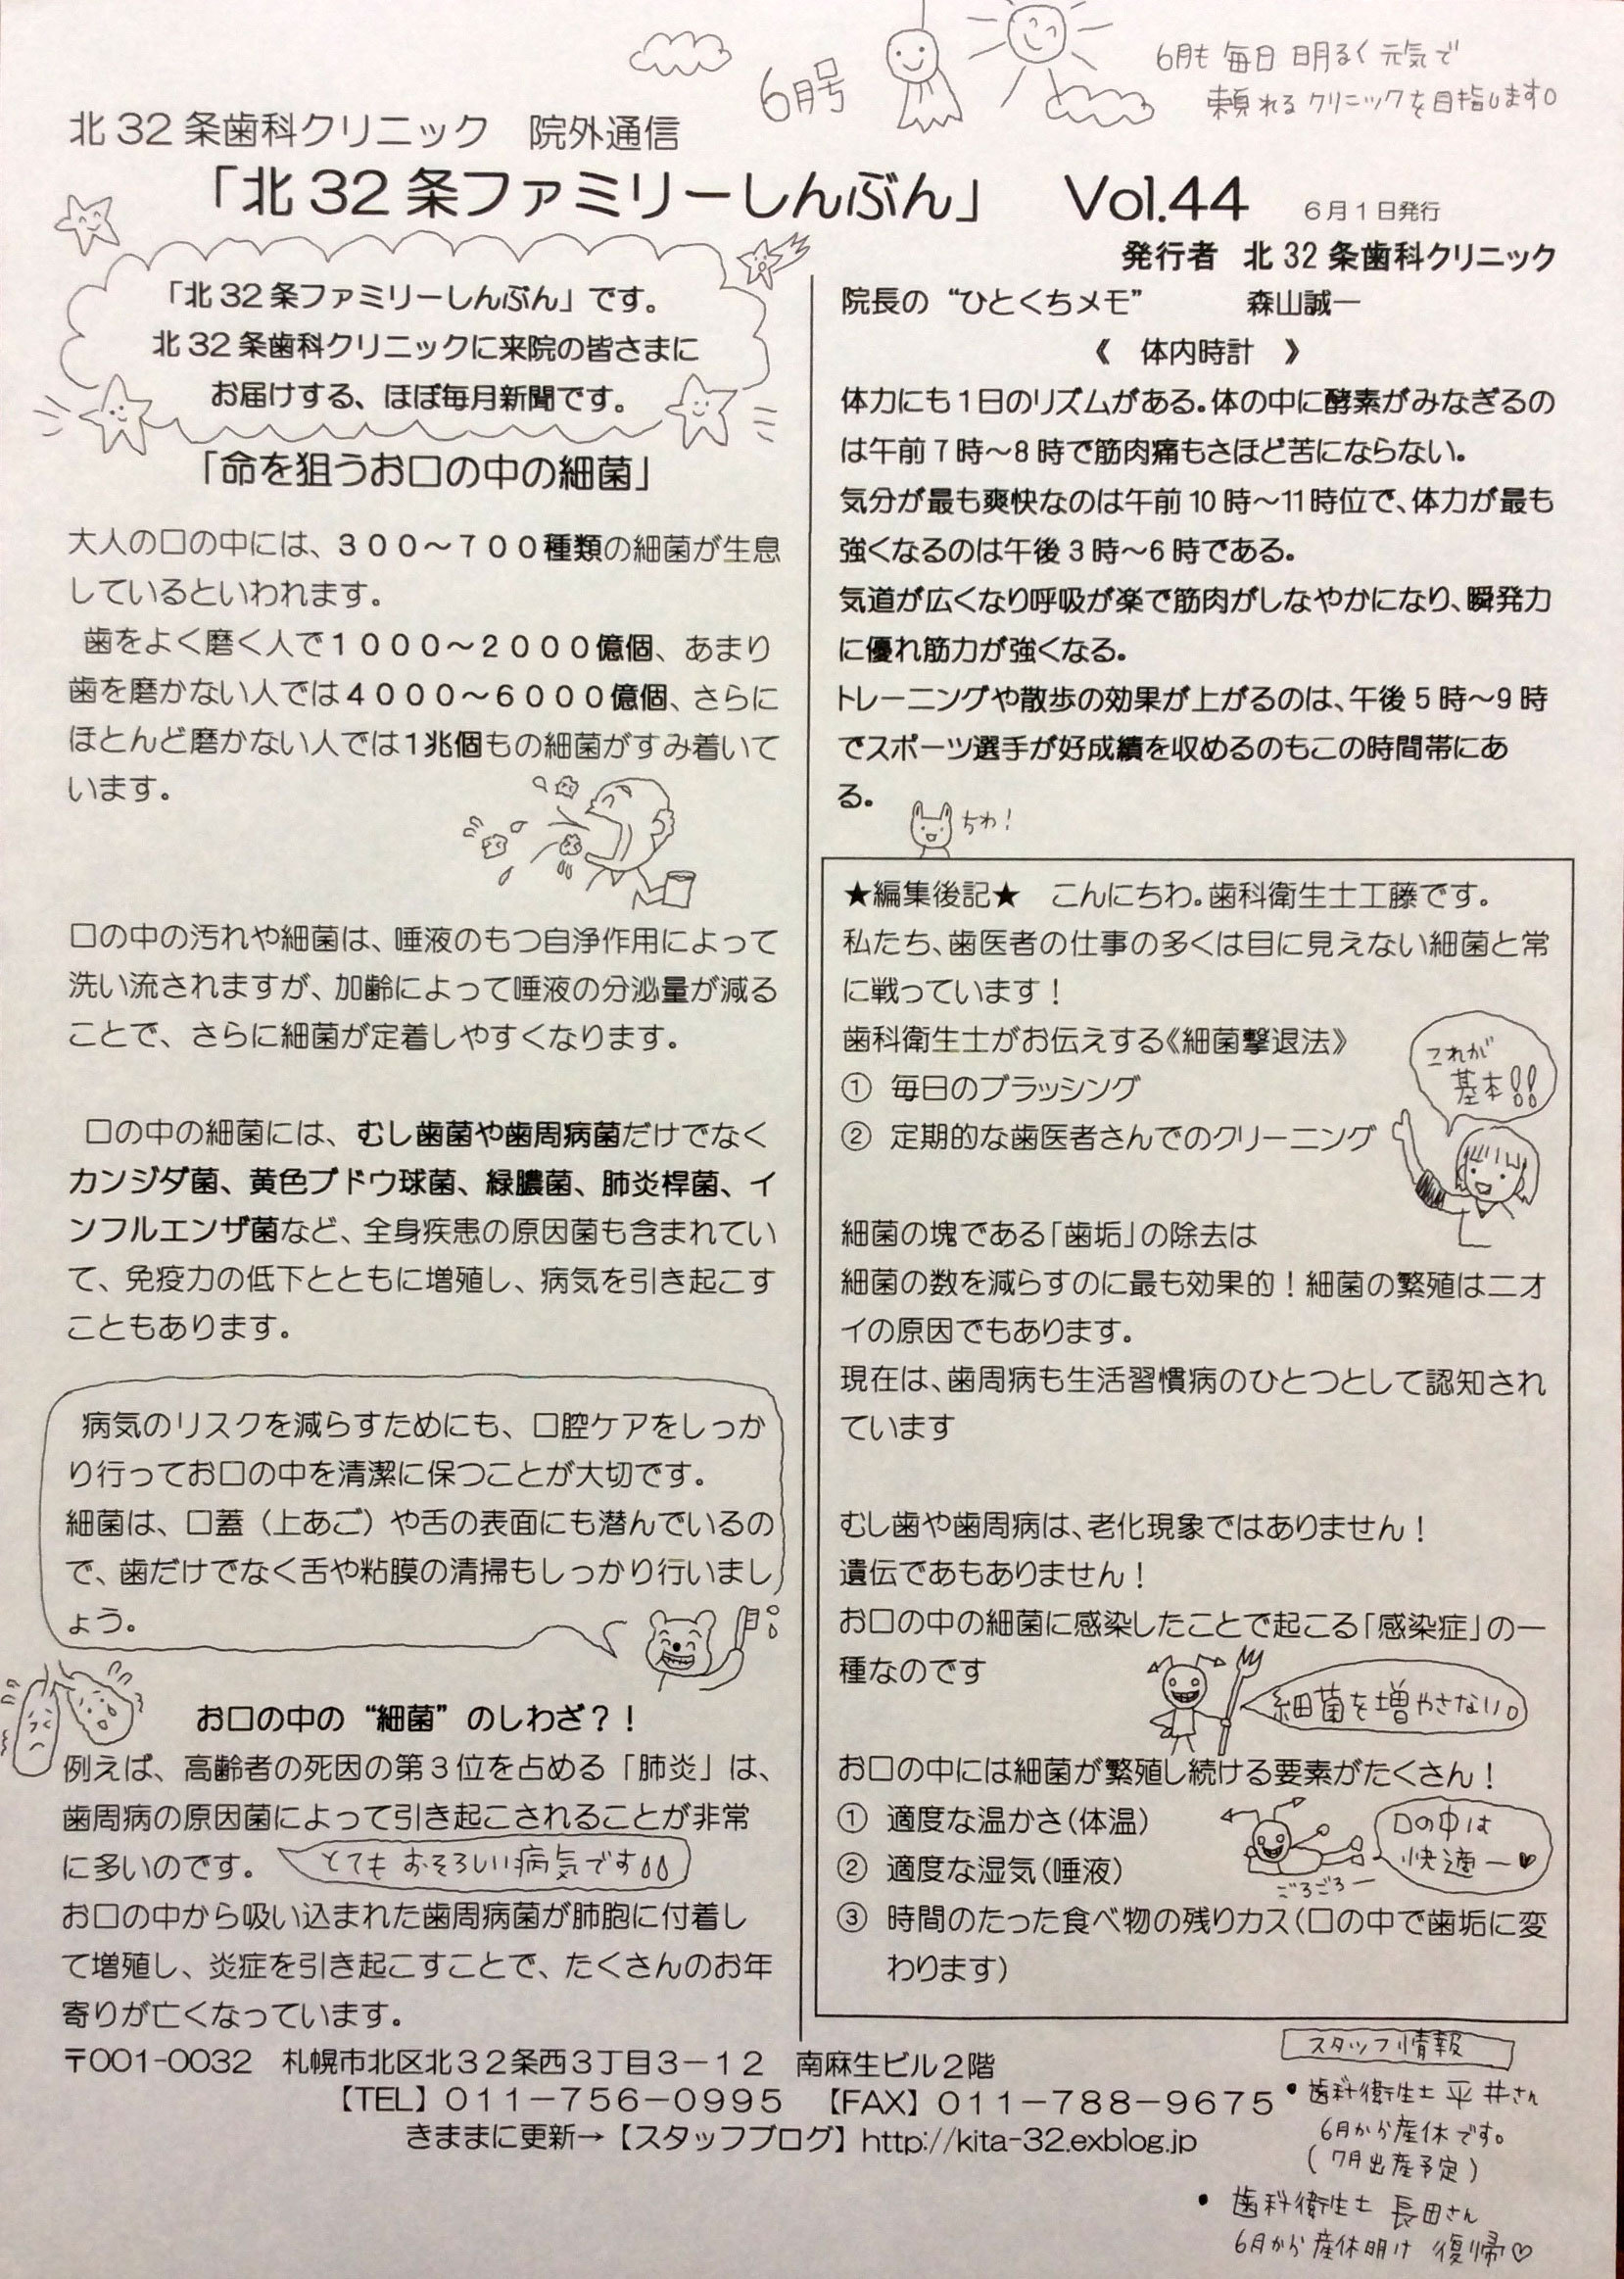 6月号
6月も 毎日 明るく 元気で
頼れる クリニックを目指します。
北32条歯科クリニック　院外通信
「北32条ファミリーしんぶん」　Vol.44　6月1日発行
発行者　北32条歯科クリニック
「北32条ファミリーしんぶん」です。
北32条歯科クリニックに来院の皆さまに
お届けする、ほぼ毎月新聞です。
「命を狙うお口の中の細菌」
大人の口の中には、３００～７００種類の細菌が生息
しているといわれます。
歯をよく磨く人で１０００～２０００億個、あまり
歯を磨かない人では４０００～６０００億個、さらに
ほとんど磨かない人では１兆個もの細菌がすみ着いて
います。
口の中の汚れや細菌は、唾液のもつ自浄作用によって
洗い流されますが、加齢によって唾液の分泌量が減る
ことで、さらに細菌が定着しやすくなります。
口の中の細菌には、むし歯菌や歯周病菌だけでなく
カンジダ菌、黄色ブドウ球菌、緑膿菌、肺炎桿菌、イ
ンフルエンザ菌など、全身疾患の原因菌も含まれてい
て、免疫力の低下とともに増殖し、病気を引き起こす
こともあります。
病気のリスクを減らすためにも、口腔ケアをしっか
り行ってお口の中を清潔に保つことが大切です。
細菌は、口蓋（上あご）や舌の表面にも潜んでいるの
で、歯だけでなく舌や粘膜の清掃もしっかり行いまし
ょう。
お口の中の“細菌”のしわざ？！
例えば、高齢者の死因の第３位を占める「肺炎」は、
歯周病の原因菌によって引き起こされることが非常
に多いのです。
とても おそろしい病気です
お口の中から吸い込まれた歯周病菌が肺胞に付着し
て増殖し、炎症を引き起こすことで、たくさんのお年
寄りが亡くなっています。
院長の“ひとくちメモ”　森山誠一
《　体内時計　》
体力にも1日のリズムがある。体の中に酵素がみなぎるの
は午前7時～8時で筋肉痛もさほど苦にならない。
気分が最も爽快なのは午前10時～11時位で、体力が最も
強くなるのは午後3時～6時である。
気道が広くなり呼吸が楽で筋肉がしなやかになり、瞬発力
に優れ筋力が強くなる。
トレーニングや散歩の効果が上がるのは、午後5時～9時
でスポーツ選手が好成績を収めるのもこの時間帯にあ
る。
ちわ！
★編集後記★　こんにちわ。歯科衛生士工藤です。
私たち、歯医者の仕事の多くは目に見えない細菌と常
に戦っています！
歯科衛生士がお伝えする《細菌撃退法》
① 毎日のブラッシング
② 定期的な歯医者さんでのクリーニング
これが
基本!!
細菌の塊である「歯垢」の除去は
細菌の数を減らすのに最も効果的！細菌の繁殖はニオ
イの原因でもあります。
現在は、歯周病も生活習慣病のひとつとして認知され
ています
むし歯や歯周病は、老化現象ではありません！
遺伝であもありません！
お口の中の細菌に感染したことで起こる「感染症」の一
種なのです
細菌を増やさない。
お口の中には細菌が繁殖し続ける要素がたくさん！
① 適度な温かさ（体温）
② 適度な湿気（唾液）
口の中は
快適ー♥
ごろごろー
③ 時間のたった食べ物の残りカス（口の中で歯垢に変
わります）
〒001-0032　札幌市北区北３２条西３丁目３－１２　南麻生ビル２階
【TEL】０１１－７５６－０９９５　【FAX】０１１－７８８－９６７５
きままに更新→【スタッフブログ】http://kita-32.exblog.jp
スタッフ情報
• 歯科衛生士 平井さん
6月から産休です。
(7月出産予定)
• 歯科衛生士 長田さん
6月から産休明け 復帰♡